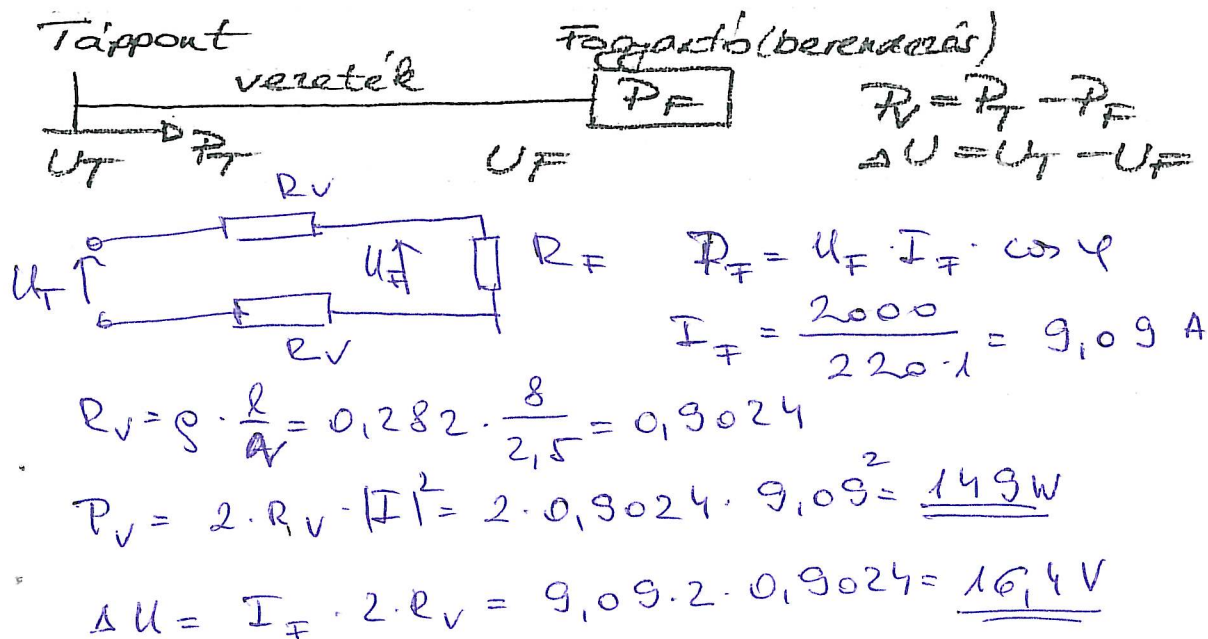 Táppont Fogyasztó (berendezés)
vezeték P_F P_V = P_T - P_F
U_T P_T U_F ΔU = U_T - U_F
R_V
U_T U_F R_F P_F = U_F · I_F · cos φ
R_V I_F = 2000 / 220·1 = 9,09 A
R_V = ρ · l/A = 0,282 · 8/2,5 = 0,9024
P_V = 2 · R_V · |I|² = 2 · 0,9024 · 9,09² = 149 W
ΔU = I_F · 2 · R_V = 9,09 · 2 · 0,9024 = 16,4 V